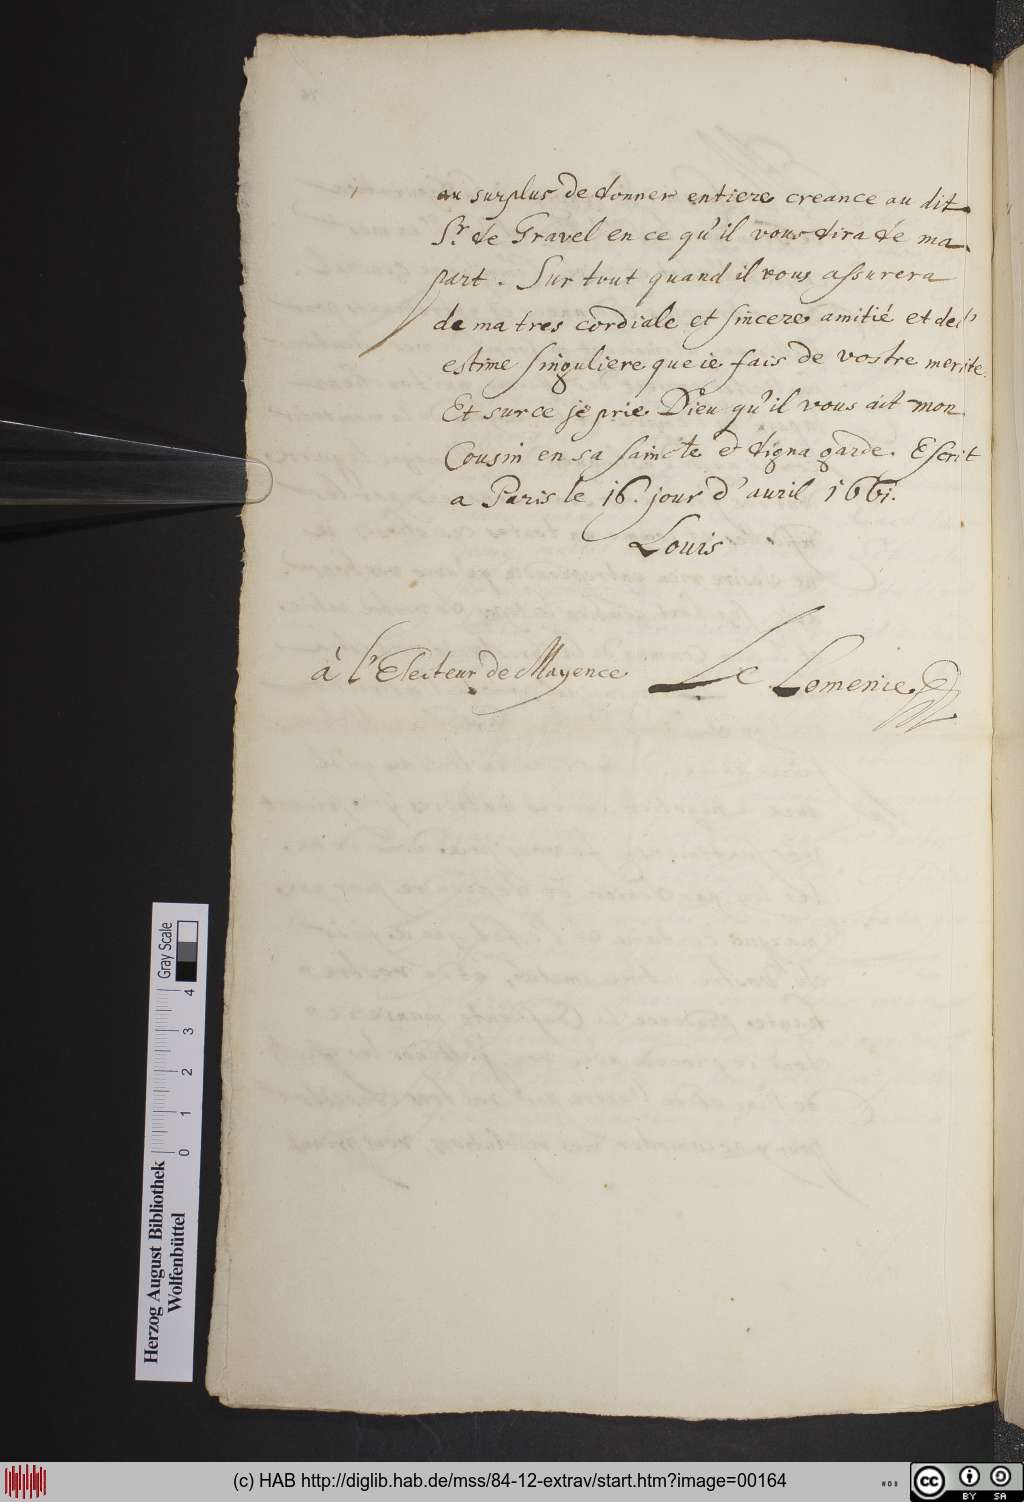 au surplus de donner entiere creance au dit
Sr. de Gravel en ce qu'il vous dira de ma
part. Sur tout quand il vous assurera
de ma tres cordiale et sincere amitié et de l'
estime singuliere que ie fais de vostre merite.
Et sur ce je prie Dieu qu'il vous ait mon
Cousin en sa saincte et digna garde. Escrit
a Paris le 16. jour d'auril 1661.
Louis
à l'Electeur de Mayence Le Lomenie
Herzog August Bibliothek
Wolfenbüttel
0 1 2 3 4
Gray Scale
(c) HAB http://diglib.hab.de/mss/84-12-extrav/start.htm?image=00164
WDB
cc BY SA